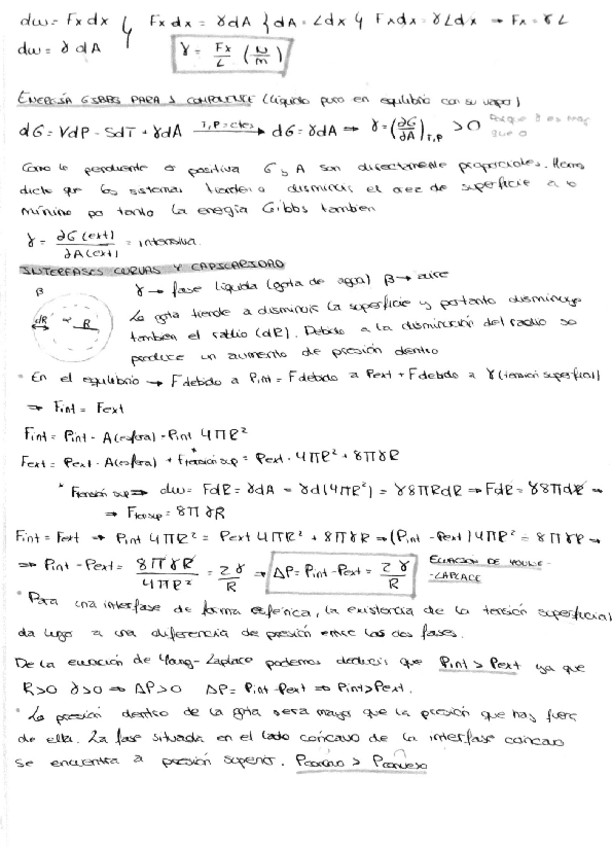 dw = Fx dx } Fx dx = γ dA { dA = L dx } Fx dx = γ L dx → Fx = γ L
dw = γ dA γ = Fx/L (N/m)
ENERGÍA GIBBS PARA 1 COMPONENTE (líquido puro en equilibrio con su vapor)
dG = VdP - SdT + γdA —T,P=ctes→ dG = γdA → γ = (∂G/∂A)T,P > 0 porque γ es mayor que 0
Como la pendiente es positiva G y A son directamente proporcionales. Hemos
dicho que los sistemas tienden a disminuir el área de superficie a lo
mínimo por tanto la energía Gibbs también
γ = ∂G(ext)/∂A(ext) = intensiva.
INTERFASES CURVAS Y CAPILARIDAD
β γ → fase líquida (gota de agua) β → aire
dR α R La gota tiende a disminuir la superficie y por tanto disminuye
también el radio (dR). Debido a la disminución del radio se
produce un aumento de presión dentro
* En el equilibrio → F debido a Pint = F debido a Pext + F debido a γ (tensión superficial)
⇒ Fint = Fext
Fint = Pint · A(esfera) = Pint 4πR²
Fext = Pext · A(esfera) + Ftensión sup* = Pext · 4πR² + 8πγR
* Ftensión sup ⇒ dw = FdR = γdA = γd(4πR²) = γ8πRdR ⇒ FdR = γ8πdR ⇒
⇒ Ftensup = 8πγR
Fint = Fext ⇒ Pint 4πR² = Pext 4πR² + 8πγR ⇒ (Pint - Pext) 4πR² = 8πγR ⇒
⇒ Pint - Pext = 8πγR/4πR² = 2γ/R ⇒ ΔP = Pint - Pext = 2γ/R ECUACIÓN DE YOUNG-
-LAPLACE
* Para una interfase de forma esférica, la existencia de la tensión superficial
da lugar a una diferencia de presión entre las dos fases.
De la ecuación de Yang-Laplace podemos deducir que Pint > Pext ya que
R>0 γ>0 ⇒ ΔP>0 ΔP = Pint - Pext ⇒ Pint > Pext.
* La presión dentro de la gota será mayor que la presión que hay fuera
de ella. La fase situada en el lado cóncavo de la interfase cóncavo
se encuentra a presión superior. Pcóncavo > Pconvexo